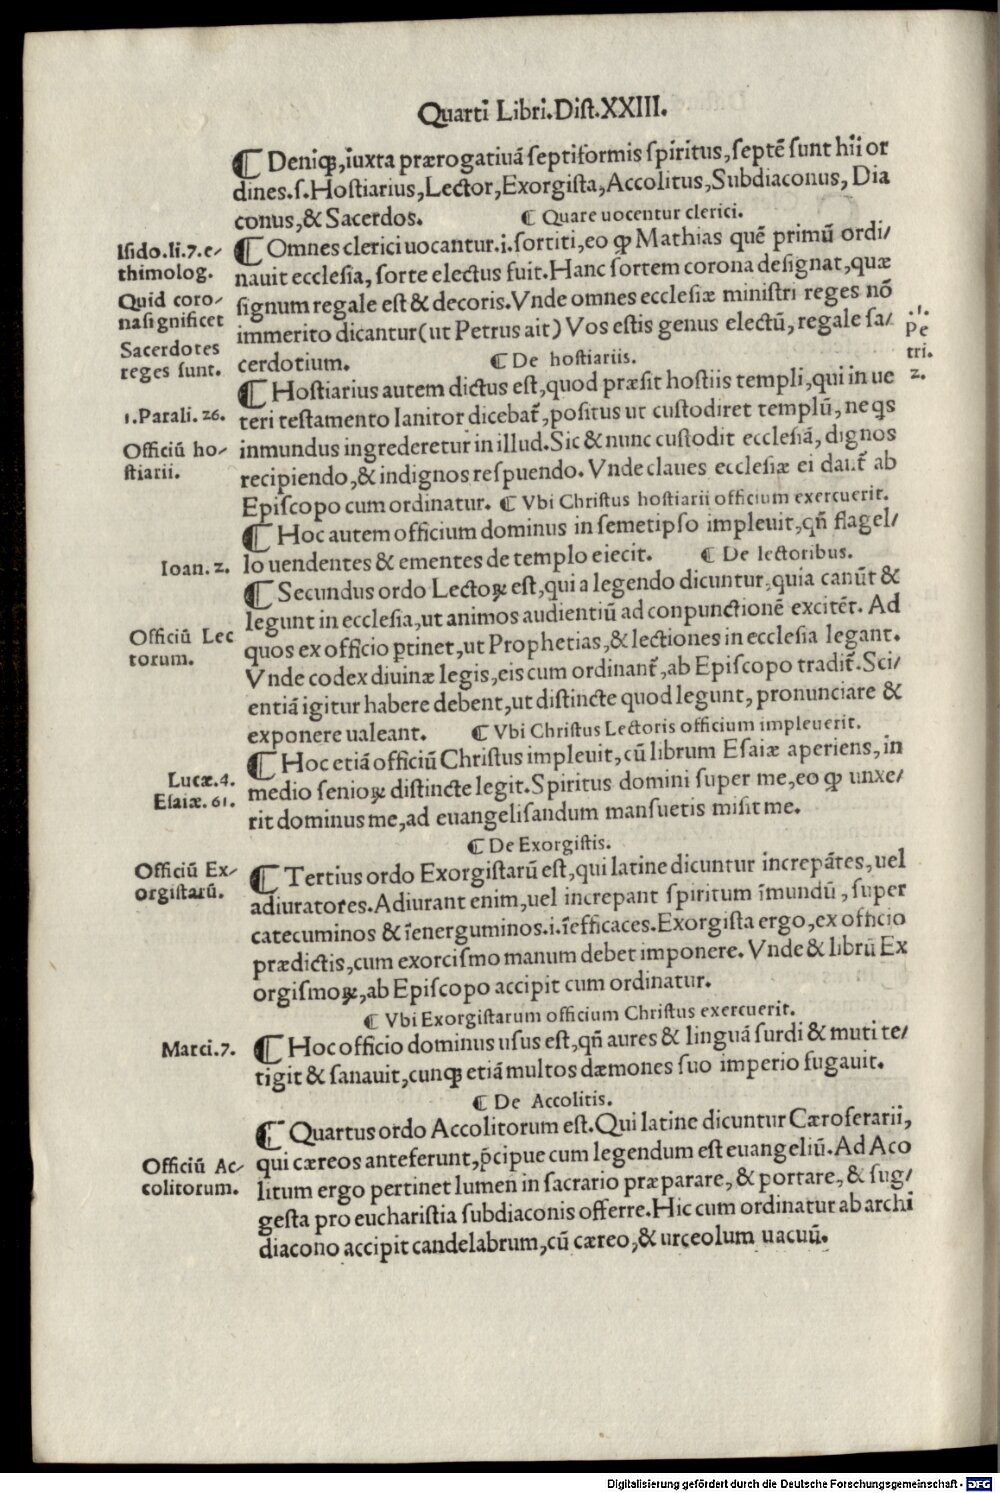 Quarti Libri.Dist.XXIII.
¶ Deniqꝫ,iuxta prærogatiuā septiformis spiritus,septē sunt hii or
dines.s.Hostiarius,Lector,Exorgista,Accolitus,Subdiaconus, Dia
conus,& Sacerdos.
¶ Quare uocentur clerici.
Isido.li.7.e-
thimolog.
¶ Omnes clerici uocantur.i.sortiti,eo ꝙ Mathias quē primū ordi/
nauit ecclesia, sorte electus fuit.Hanc sortem corona designat,quæ
Quid coro-
na significet
signum regale est & decoris.Vnde omnes ecclesiæ ministri reges nō
immerito dicantur(ut Petrus ait) Vos estis genus electū, regale sa/
.1.
Pe
tri.
2.
Sacerdotes
reges sunt.
cerdotium.
¶ De hostiariis.
¶ Hostiarius autem dictus est,quod præsit hostiis templi,qui in ue
1.Parali.26.
teri testamento Ianitor dicebat̄,positus ut custodiret templū, neqs
Officiū ho-
stiarii.
inmundus ingrederetur in illud.Sic & nunc custodit ecclesiā, dignos
recipiendo,& indignos respuendo. Vnde claues ecclesiæ ei dant̄ ab
Episcopo cum ordinatur.
¶ Vbi Christus hostiarii officium exercuerit.
¶ Hoc autem officium dominus in semetipso impleuit,qn̄ flagel/
Ioan.2.
lo uendentes & ementes de templo eiecit.
¶ De lectoribus.
¶ Secundus ordo Lectoꝝ est,qui a legendo dicuntur,quia canūt &
legunt in ecclesia,ut animos audientiū ad conpunctionē excitēt. Ad
Officiū Lec
torum.
quos ex officio ꝑtinet,ut Prophetias,& lectiones in ecclesia legant.
Vnde codex diuinæ legis,eis cum ordinant̄,ab Episcopo tradit̄.Sci/
entiā igitur habere debent,ut distincte quod legunt, pronunciare &
exponere ualeant.
¶ Vbi Christus Lectoris officium impleuerit.
¶ Hoc etiā officiū Christus impleuit,cū librum Esaiæ aperiens,in
Lucæ.4.
Esaiæ.61.
medio senioꝝ distincte legit.Spiritus domini super me,eo ꝙ unxe/
rit dominus me,ad euangelisandum mansuetis misit me.
¶ De Exorgistis.
Officiū Ex-
orgistarū.
¶ Tertius ordo Exorgistarū est,qui latine dicuntur increpātes,uel
adiuratores.Adiurant enim,uel increpant spiritum īmundū, super
catecuminos & īenerguminos.i.īefficaces.Exorgista ergo,ex officio
prædictis,cum exorcismo manum debet imponere. Vnde & librū Ex
orgismoꝝ,ab Episcopo accipit cum ordinatur.
¶ Vbi Exorgistarum officium Christus exercuerit.
Marci.7.
¶ Hoc officio dominus usus est,qn̄ aures & linguā surdi & muti te/
tigit & sanauit,cunqꝫ etiā multos dæmones suo imperio fugauit.
¶ De Accolitis.
¶ Quartus ordo Accolitorum est.Qui latine dicuntur Cæroferarii,
Officiū Ac-
colitorum.
qui cæreos anteferunt,p̄cipue cum legendum est euangeliū.Ad Aco
litum ergo pertinet lumen in sacrario præparare,& portare,& sug/
gesta pro eucharistia subdiaconis offerre.Hic cum ordinatur ab archi
diacono accipit candelabrum,cū cæreo,& urceolum uacuū.
Digitalisierung gefördert durch die Deutsche Forschungsgemeinschaft - DFG